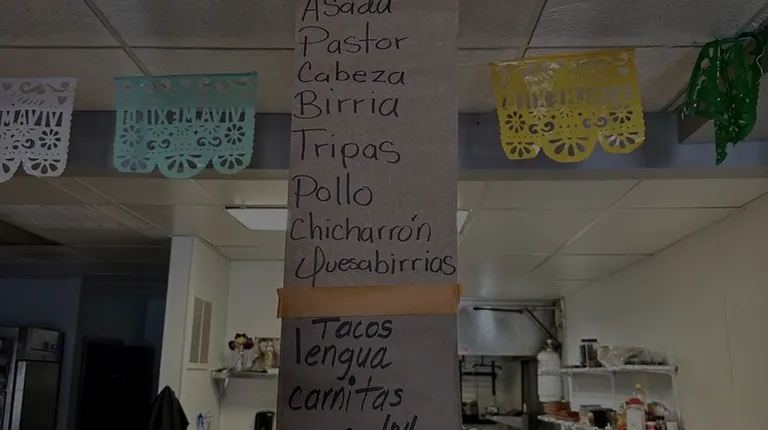 Asada
Pastor
Cabeza
Birria
Tripas
Pollo
Chicharrón
Quesabirrias
Tacos
lengua
carnitas
VIVA MEXICO